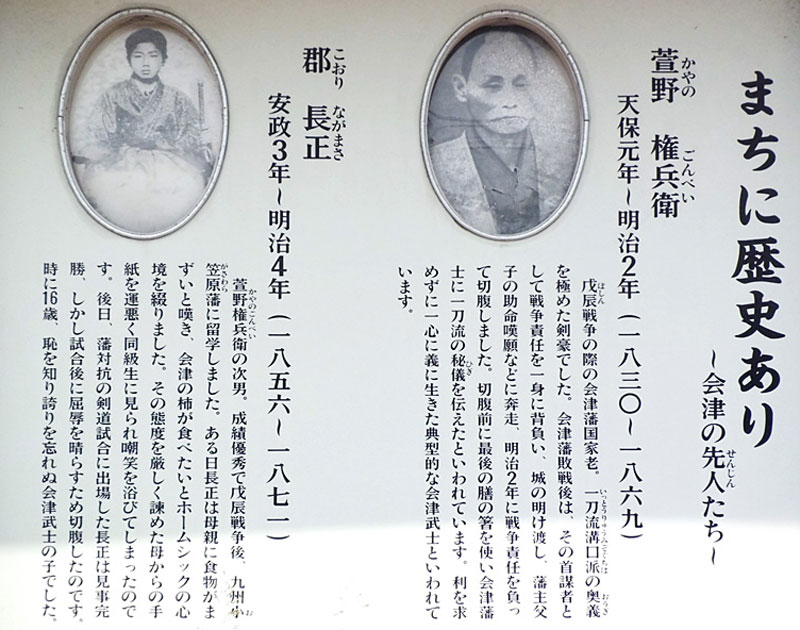 まちに歴史あり
～会津の先人たち～
せんじん
萱野 権兵衛
かやの ごんべい
天保元年～明治2年（一八三〇～一八六九）
戊辰戦争の際の会津藩国家老。一刀流溝口派の奥義
ぼしん いっとうりゅうみぞぐちは おうぎ
を極めた剣豪でした。会津藩敗戦後は、その首謀者と
して戦争責任を一身に背負い、城の明け渡し、藩主父
子の助命嘆願などに奔走、明治2年に戦争責任を負っ
て切腹しました。切腹前に最後の膳の箸を使い会津藩
士に一刀流の秘儀を伝えたといわれています。利を求
ひぎ
めずに一心に義に生きた典型的な会津武士といわれて
います。
郡 長正
こおり ながまさ
安政3年～明治4年（一八五六～一八七一）
萱野権兵衛の次男。成績優秀で戊辰戦争後、九州小
かやのごんべい お
笠原藩に留学しました。ある日長正は母親に食物がま
がさわら
ずいと嘆き、会津の柿が食べたいとホームシックの心
境を綴りました。その態度を厳しく諫めた母からの手
紙を運悪く同級生に見られ嘲笑を浴びてしまったので
す。後日、藩対抗の剣道試合に出場した長正は見事完
勝、しかし試合後に屈辱を晴らすため切腹したのです。
時に16歳、恥を知り誇りを忘れぬ会津武士の子でした。